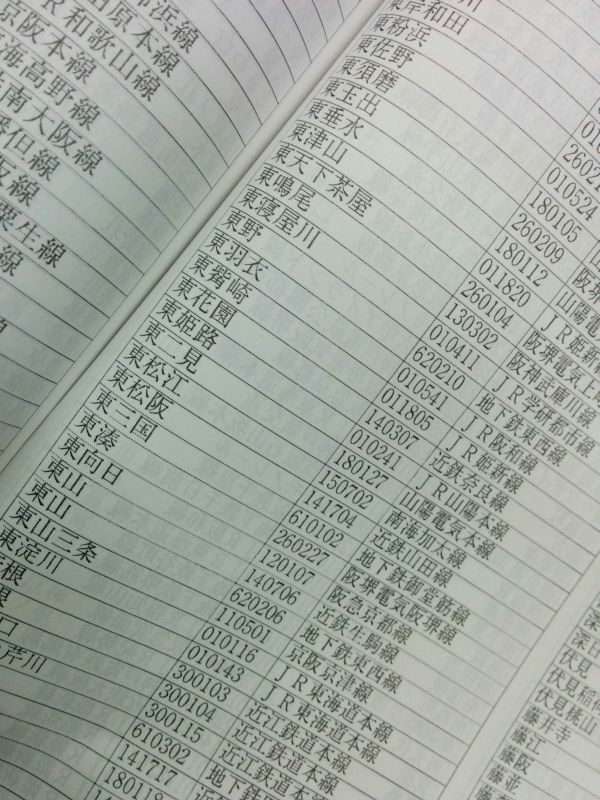 浜線
原本線
R和歌山線
京阪本線
海高野線
南大阪線
伯線
線
生線
線
東岸和田
東粉浜
東佐野 010524
東須磨 180105
東玉出 260209 阪堺
東垂水 180112 山陽電
東津山 011820 JR姫新
東天下茶屋 260104 阪堺電気上
東鳴尾 130302 阪神武庫川線
東寝屋川 010411 JR学研都市線
東野 620210 地下鉄東西線
東羽衣 010541 JR阪和線
東觜崎 011805 JR姫新線
東花園 140307 近鉄奈良線
東姫路 010241 JR山陽本線
東二見 180127 山陽電気本線
東松江 150702 南海加太線
東松阪 141704 近鉄山田線
東三国 610102 地下鉄御堂筋線
東湊 260227 阪堺電気阪堺線
東向日 120107 阪急京都線
東山 140706 近鉄生駒線
東山 620206 地下鉄東西線
東山三条 110501 京阪京津線
東淀川 010116 JR東海道本線
根 010143 JR東海道本線
根 300103 近江鉄道本線
口 300104 近江鉄道本線
芹川 300115 近江鉄道本線
610302 地下鉄
141717 近
180118
伏見
伏見稲
伏見桃山
藤井寺
藤江
藤阪
藤並